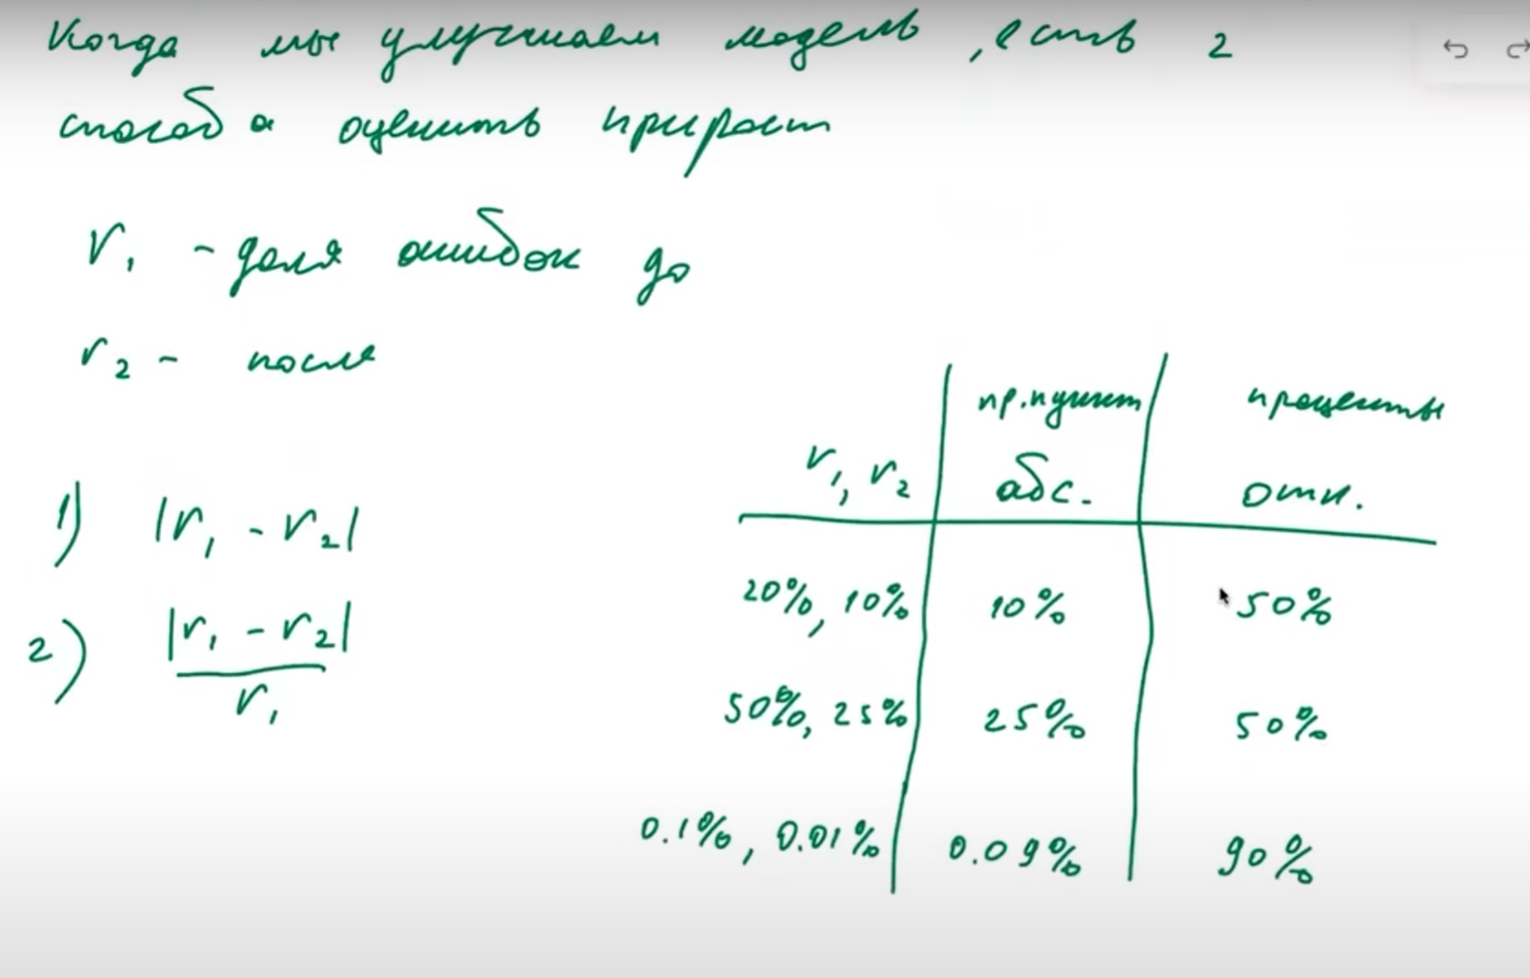 Когда мы улучшаем модель, есть 2
способа оценить прирост
r₁ - доля ошибок до
r₂ - после
1) |r₁ - r₂|
2) |r₁ - r₂| / r₁
r₁, r₂ пр.пункт абс. проценты отн.
20%, 10% 10% 50%
50%, 25% 25% 50%
0.1%, 0.01% 0.09% 90%